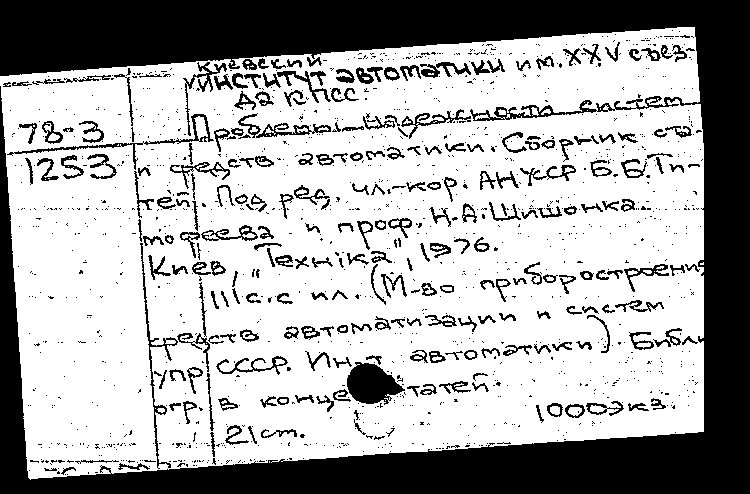 Киевский
ИНСТИТУТ автоматики им. XXV съез-
да КПСС.
78-3
1253
Проблемы надежности систем
и средств автоматики. Сборник ста-
тей. Под ред. чл.-кор. АН УССР Б.Б. Ти-
мофеева и проф. Н.А. Шишонка.
Киев, „Техніка", 1976.
111 с. с ил. (М-во приборостроения,
средств автоматизации и систем
упр. СССР. Ин-т автоматики). Библи
огр. в конце статей.
21 cm. 1000 экз.